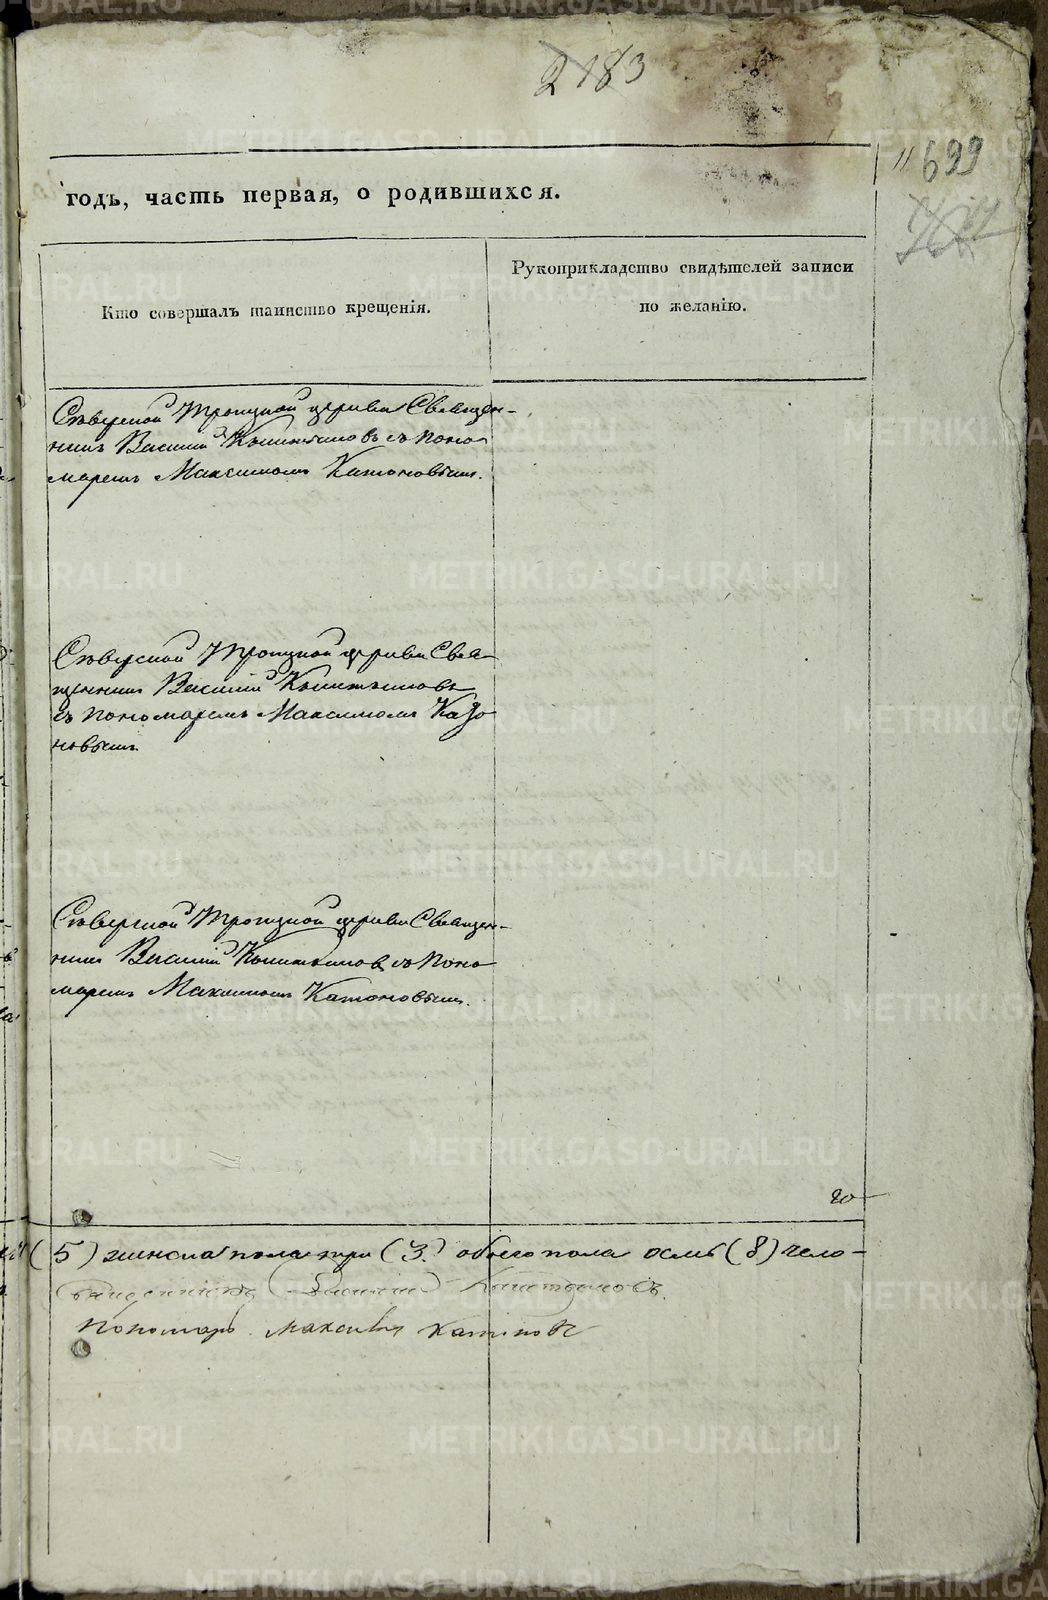 2183
"699
годъ, часть первая, о родившихся.
Кто совершалъ таинство крещенія.
Рукоприкладство свидѣтелей записи
по желанію.
Сѣверской Троицкой церкви Священ-
никъ Василий съ поно
маремъ Максимомъ Катоновымъ.
Сѣверской Троицкой церкви Свя-
щенникъ Василий
съ пономаремъ Максимомъ Като
новымъ.
Сѣверской Троицкой церкви Священ-
никъ Василий съ поно
маремъ Максимомъ Катоновымъ.
(5) женска пола три (3.) обоего пола осмь (8) чело-
Священникъ Василий
Пономарь Максимъ Катоновъ
METRIKI.GASO-URAL.RU